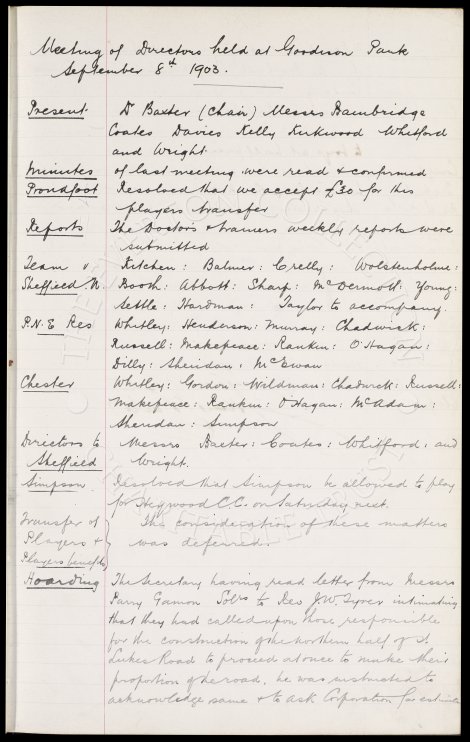 Meeting of Directors held at Goodison Park
September 8th 1903.
Present Dr Baxter (Chair) Messrs Bainbridge
Coates Davies Kelly Kirkwood Whitford
and Wright
Minutes of last meeting were read & confirmed
Proudfoot Resolved that we accept £30 for this
players transfer
Reports The Doctors & trainers weekly reports were
submitted
Team v Kitchen: Balmer: Crelly: Wolstenholme:
Sheffield W Booth: Abbott: Sharp: McDermott: Young:
Settle: Hardman: Taylor to accompany.
P.N.E Res Whitley: Henderson: Murray: Chadwick:
Russell: Makepeace: Rankin: O'Hagan:
Dilly: Sheridan: McEwan
Chester Whitley: Gordon: Wildman: Chadwick: Russell:
Makepeace: Rankin: O'Hagan: McAdam:
Sheridan: Simpson
Directors to Messrs Baxter: Coates: Whitford: and
Sheffield Wright.
Simpson Resolved that Simpson be allowed to play
for Heywood C.C. on Saturday next.
Transfer of The consideration of these matters
Players & was deferred.
Players benefits
Hoarding The Secretary having read letter from Messrs
Parry Gamon Solrs to Rev J.W. Tyrer intimating
that they had called upon those responsible
for the construction of the northern half of St
Lukes Road to proceed at once to make their
proportion of the road, he was instructed to
acknowledge same & to ask Corporation for estimate